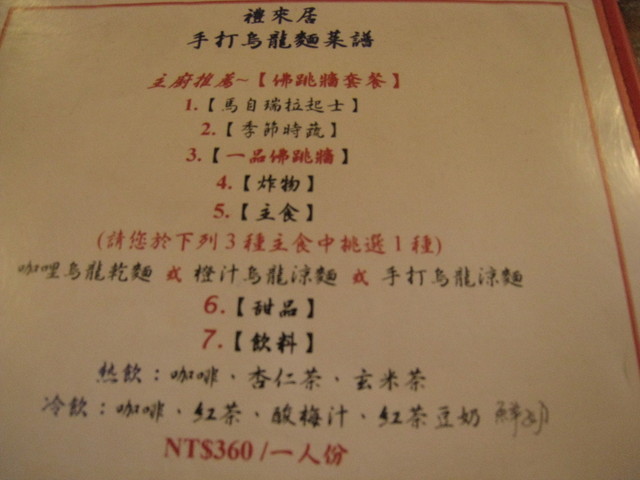 禮來居
手打烏龍麵菜譜
主廚推薦~【佛跳牆套餐】
1.【馬自瑞拉起士】
2.【季節時蔬】
3.【一品佛跳牆】
4.【炸物】
5.【主食】
(請您於下列3種主食中挑選1種)
咖哩烏龍乾麵 或 橙汁烏龍涼麵 或 手打烏龍涼麵
6.【甜品】
7.【飲料】
熱飲：咖啡、杏仁茶、玄米茶
冷飲：咖啡、紅茶、酸梅汁、紅茶豆奶 鮮奶
NT$360/一人份